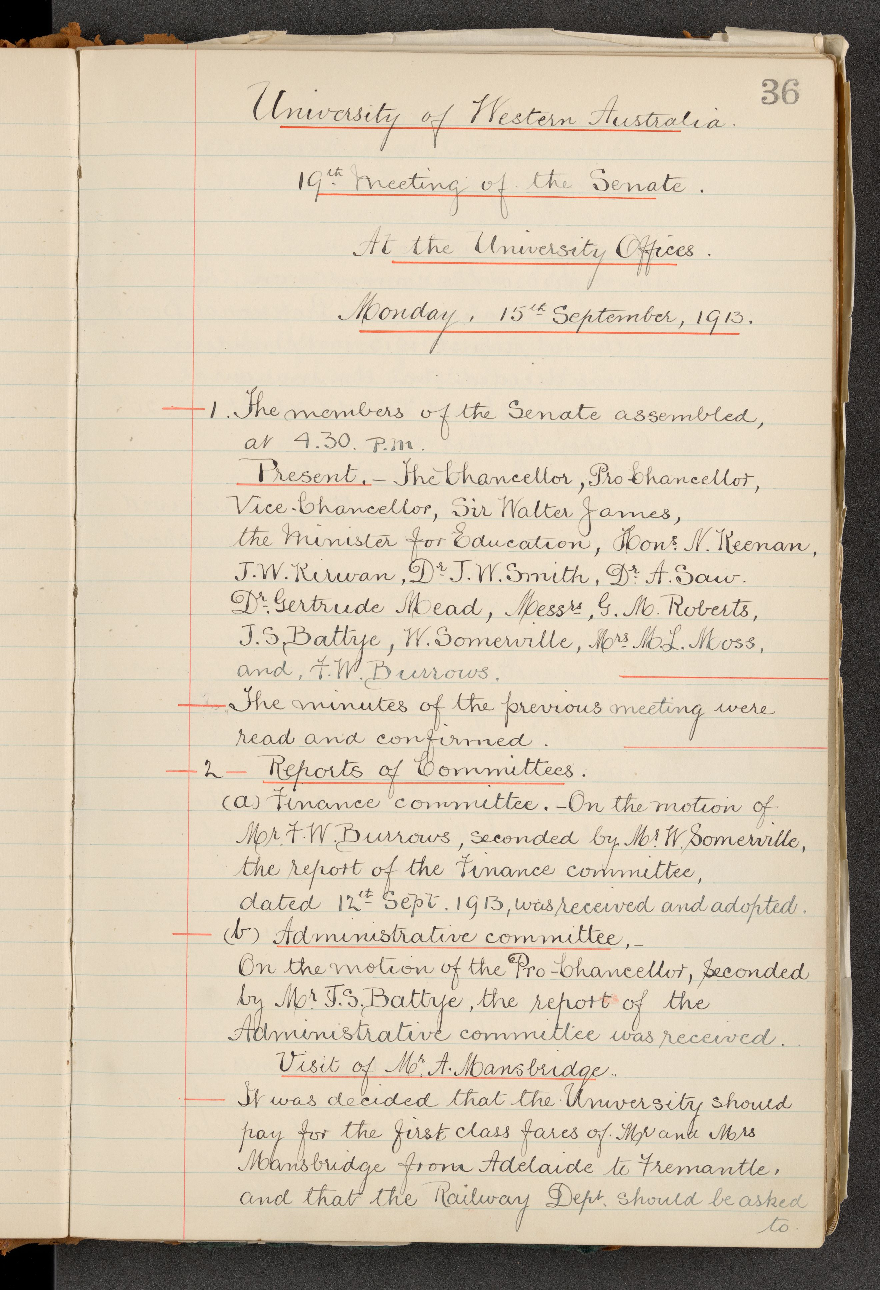 36
University of Western Australia.
19th Meeting of the Senate.
At the University Offices.
Monday, 15th September, 1913.
1. The members of the Senate assembled,
at 4.30. P.M.
Present. - The Chancellor, Pro Chancellor,
Vice-Chancellor, Sir Walter James,
the Minister for Education, Hons. N. Keenan,
J.W. Kirwan, Dr. J.W. Smith, Dr. A. Saw.
Dr. Gertrude Mead, Messrs, G. M. Roberts,
J.S. Battye, W. Somerville, Mrs M.L. Moss,
and, F.W. Burrows.
The minutes of the previous meeting were
read and confirmed.
2 - Reports of Committees.
(a) Finance committee. - On the motion of
Mr. F.W. Burrows, seconded by Mr. W. Somerville,
the report of the Finance committee,
dated 12th Sept. 1913, was received and adopted.
(b) Administrative committee, -
On the motion of the Pro-Chancellor, seconded
by Mr. J.S. Battye, the report of the
Administrative committee was received.
Visit of Mr. A. Mansbridge.
It was decided that the University should
pay for the first class fares of Mr and Mrs
Mansbridge from Adelaide to Fremantle,
and that the Railway Dept. should be asked
to.